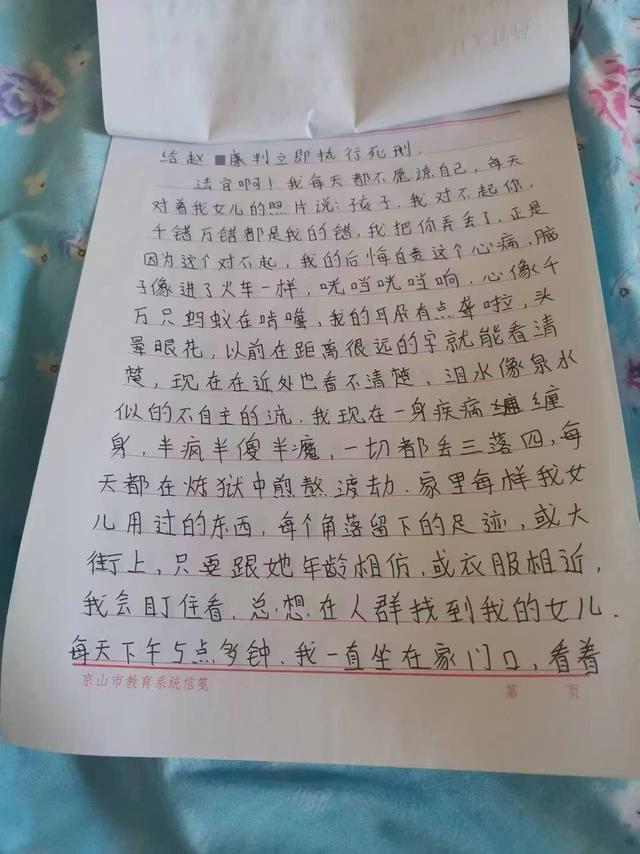 给赵■康判立即执行死刑.
法官啊！我每天都不愿谅自己，每天
对着我女儿的照片说：孩子，我对不起你，
千错万错都是我的错，我把你弄丢了，正是
因为这个对不起，我的后悔自责这个心痛，脑
子像进了火车一样，咣当咣当响，心像千
万只蚂蚁在啃噬，我的耳朵有点聋啦，头
晕眼花，以前在距离很远的字就能看清
楚，现在在近处也看不清楚、泪水像泉水
似的不自主的流.我现在一身疾病缠
身，半疯半傻半魔，一切都丢三落四，每
天都在炼狱中煎熬渡劫.家里每样我女
儿用过的东西，每个角落留下的足迹，或大
街上，只要跟她年龄相仿，或衣服相近，
我会盯住看，总想在人群找到我的女儿.
每天下午5点多钟、我一直坐在家门口，看着
京山市教育系统信笺 第 页